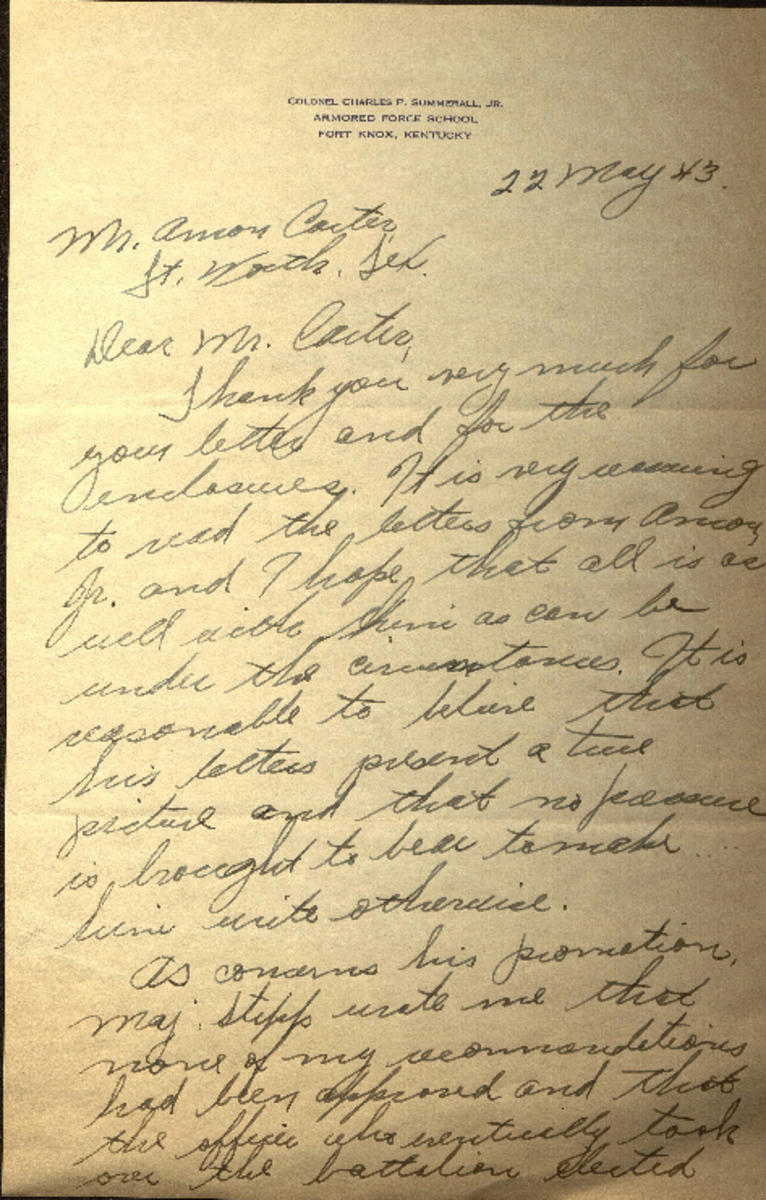 COLONEL CHARLES P. SUMMERALL, JR.
ARMORED FORCE SCHOOL
FORT KNOX, KENTUCKY
22 May 43.
Mr. Amon Carter,
Ft. Worth, Tex.
Dear Mr. Carter,
Thank you very much for
your letter and for the
enclosures. It is very
to read the letters from Amon,
Jr. and I hope that all is as
well with him as can be
under the circumstances. It is
reasonable to believe that
his letters present a true
picture and that no pressure
is brought to bear to make
him write otherwise.
As concerns his promotion,
Maj. Stipp wrote me that
none of my recommendations
had been approved and that
the officer who eventually took
over the battalion elected